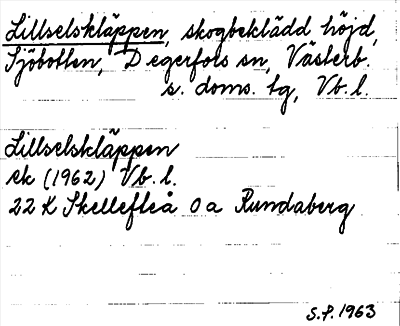 Lillselskläppen, skogbeklädd höjd,
Sjöbotten, Degerfors sn, Västerb.
s. doms. lg, Vb. l.
Lillselskläppen
ek (1962) Vb. l.
22 K Skellefteå 0 a Rundaberg
S.P. 1963